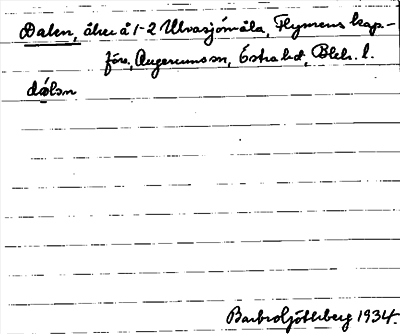 Dalen, åker å 1-2 Ulvasjömåla, Flymens kap-
förs., Augerums sn, Östra hd, Blek. l.
dɑ́lən
Barbro Götherberg 1934.